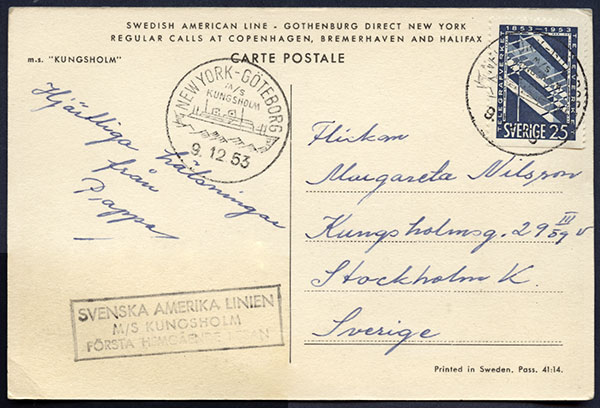 SWEDISH AMERICAN LINE - GOTHENBURG DIRECT NEW YORK
REGULAR CALLS AT COPENHAGEN, BREMERHAVEN AND HALIFAX
m.s. "KUNGSHOLM"
CARTE POSTALE
NEW YORK-GÖTEBORG
M/S
KUNGSHOLM
9.12.53
1853-1953
TELEGRAFVERKET
TELEVERKET
SVERIGE 25
Hjärtliga hälsningar
från
Pappa
Flickan
Margareta Nilsson
Kungsholmsg. 29
Stockholm K.
Sverige
SVENSKA AMERIKA LINIEN
M/S KUNGSHOLM
FÖRSTA HEMGÅENDE
Printed in Sweden. Pass. 41:14.